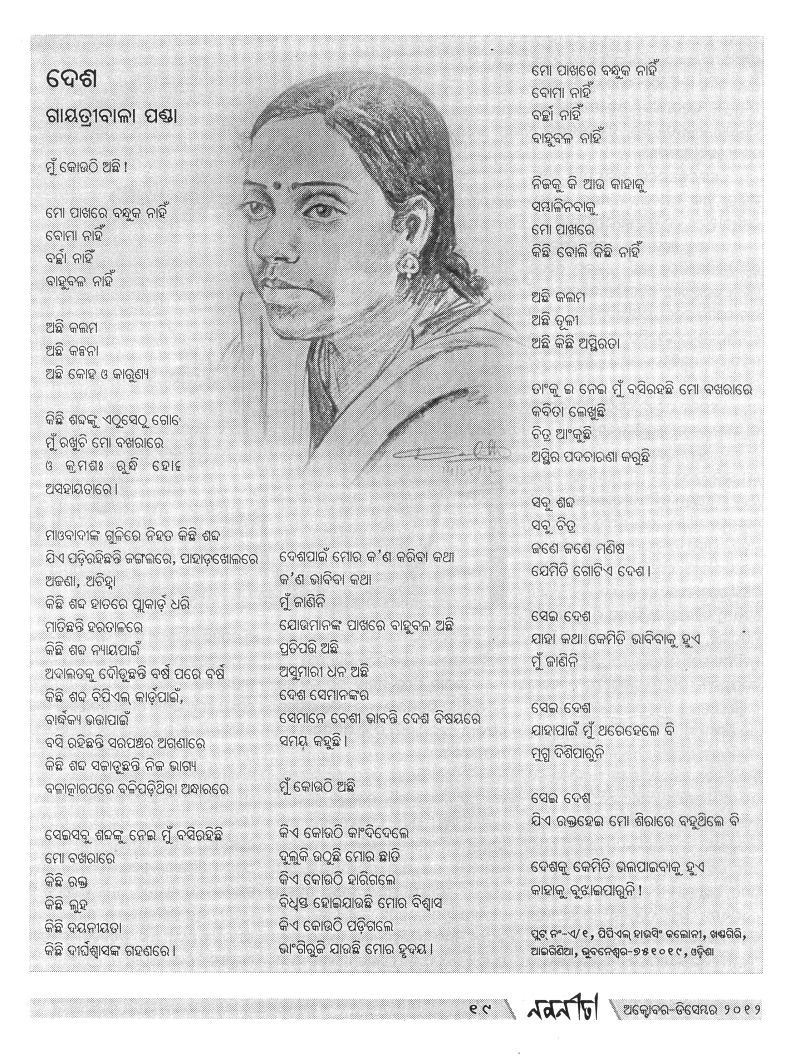 ଦେଶ
ଗାୟତ୍ରୀବାଳା ପଣ୍ଡା
ମୁଁ କୋଉଠି ଅଛି !
ମୋ ପାଖରେ ବନ୍ଧୁକ ନାହିଁ
ବୋମା ନାହିଁ
ବର୍ଚ୍ଛା ନାହିଁ
ବାହୁବଳ ନାହିଁ
ଅଛି କଲମ
ଅଛି କଳ୍ପନା
ଅଛି କୋହ ଓ କାରୁଣ୍ୟ
କିଛି ଶବ୍ଦଙ୍କୁ ଏଠୁସେଠୁ ଗୋଟେ
ମୁଁ ରଖୁଚି ମୋ ବଖରାରେ
ଓ କ୍ରମଶଃ ରୁନ୍ଧି ହୋଇ
ଅସହାୟତାରେ।
ମାଓବାଦୀଙ୍କ ଗୁଳିରେ ନିହତ କିଛି ଶବ୍ଦ
ଯିଏ ପଡ଼ିରହିଛନ୍ତି ଜଙ୍ଗଲରେ, ପାହାଡ଼ଖୋଲରେ
ଅଜଣା, ଅଚିହ୍ନା
କିଛି ଶବ୍ଦ ହାତରେ ପ୍ଲାକାର୍ଡ଼ ଧରି
ମାତିଛନ୍ତି ହରତାଳରେ
କିଛି ଶବ୍ଦ ନ୍ୟାୟପାଇଁ
ଅଦାଲତକୁ ଦୌଡୁଛନ୍ତି ବର୍ଷ ପରେ ବର୍ଷ
କିଛି ଶବ୍ଦ ବିପିଏଲ୍ କାର୍ଡ଼ପାଇଁ,
ବାର୍ଦ୍ଧକ୍ୟ ଭତ୍ତାପାଇଁ
ବସି ରହିଛନ୍ତି ସରପଞ୍ଚର ଅଗଣାରେ
କିଛି ଶବ୍ଦ ସଜାଡ଼ୁଛନ୍ତି ନିଜ ଭାଗ୍ୟ
ବଳାତ୍କାରପରେ ବଳିପଡ଼ିଥିବା ଅନ୍ଧାରରେ
ସେଇସବୁ ଶବ୍ଦଙ୍କୁ ନେଇ ମୁଁ ବସିରହିଛି
ମୋ ବଖରାରେ
କିଛି ରକ୍ତ
କିଛି ଲୁହ
କିଛି ଦୟନୀୟତା
କିଛି ଦୀର୍ଘଶ୍ୱାସଙ୍କ ଗହଣରେ।
ଦେଶପାଇଁ ମୋର କ'ଣ କରିବା କଥା
କ'ଣ ଭାବିବା କଥା
ମୁଁ ଜାଣିନି
ଯୋଉମାନଙ୍କ ପାଖରେ ବାହୁବଳ ଅଛି
ପ୍ରତିପତ୍ତି ଅଛି
ଅସୁମାରୀ ଧନ ଅଛି
ଦେଶ ସେମାନଙ୍କର
ସେମାନେ ବେଶୀ ଭାବନ୍ତି ଦେଶ ବିଷୟରେ
ସମୟ କହୁଛି।
ମୁଁ କୋଉଠି ଅଛି
କିଏ କୋଉଠି କାଂଦିଦେଲେ
ଦୁଲୁକି ଉଠୁଛି ମୋର ଛାତି
କିଏ କୋଉଠି ହାରିଗଲେ
ବିଧ୍ୱସ୍ତ ହୋଇଯାଉଛି ମୋର ବିଶ୍ୱାସ
କିଏ କୋଉଠି ପଡ଼ିଗଲେ
ଭାଂଗିରୁଜି ଯାଉଛି ମୋର ହୃଦୟ।
ମୋ ପାଖରେ ବନ୍ଧୁକ ନାହିଁ
ବୋମା ନାହିଁ
ବର୍ଚ୍ଛା ନାହିଁ
ବାହୁବଳ ନାହିଁ
ନିଜକୁ କି ଆଉ କାହାକୁ
ସମ୍ଭାଳିନବାକୁ
ମୋ ପାଖରେ
କିଛି ବୋଲି କିଛି ନାହିଁ
ଅଛି କଲମ
ଅଛି ତୂଳୀ
ଅଛି କିଛି ଅସ୍ଥିରତା
ତାଂକୁ ଇ ନେଇ ମୁଁ ବସିରହଛି ମୋ ବଖରାରେ
କବିତା ଲେଖୁଛି
ଚିତ୍ର ଆଂକୁଛି
ଅସ୍ଥିର ପଦଚାରଣା କରୁଛି
ସବୁ ଶବ୍ଦ
ସବୁ ଚିତ୍ର
ଜଣେ ଜଣେ ମଣିଷ
ଯେମିତି ଗୋଟିଏ ଦେଶ।
ସେଇ ଦେଶ
ଯାହା କଥା କେମିତି ଭାବିବାକୁ ହୁଏ
ମୁଁ ଜାଣିନି
ସେଇ ଦେଶ
ଯାହାପାଇଁ ମୁଁ ଥରେହେଲେ ବି
ମୁଗ୍ଧ ଦିଶିପାରୁନି
ସେଇ ଦେଶ
ଯିଏ ରକ୍ତହେଇ ମୋ ଶିରାରେ ବହୁଥିଲେ ବି
ଦେଶକୁ କେମିତି ଭଲପାଇବାକୁ ହୁଏ
କାହାକୁ ବୁଝାଇପାରୁନି !
ପ୍ଲଟ୍ ନଂ-ଏ/୧, ପିପିଏଲ୍ ହାଉସିଂ କଲୋନୀ, ଖଣ୍ଡଗିରି,
ଆଇଗିଣିଆ, ଭୁବନେଶ୍ୱର-୭୫୧୦୧୯, ଓଡ଼ିଶା
୧୯ ନବନୀତା ଅକ୍ଟୋବର-ଡିସେମ୍ବର ୨୦୧୨